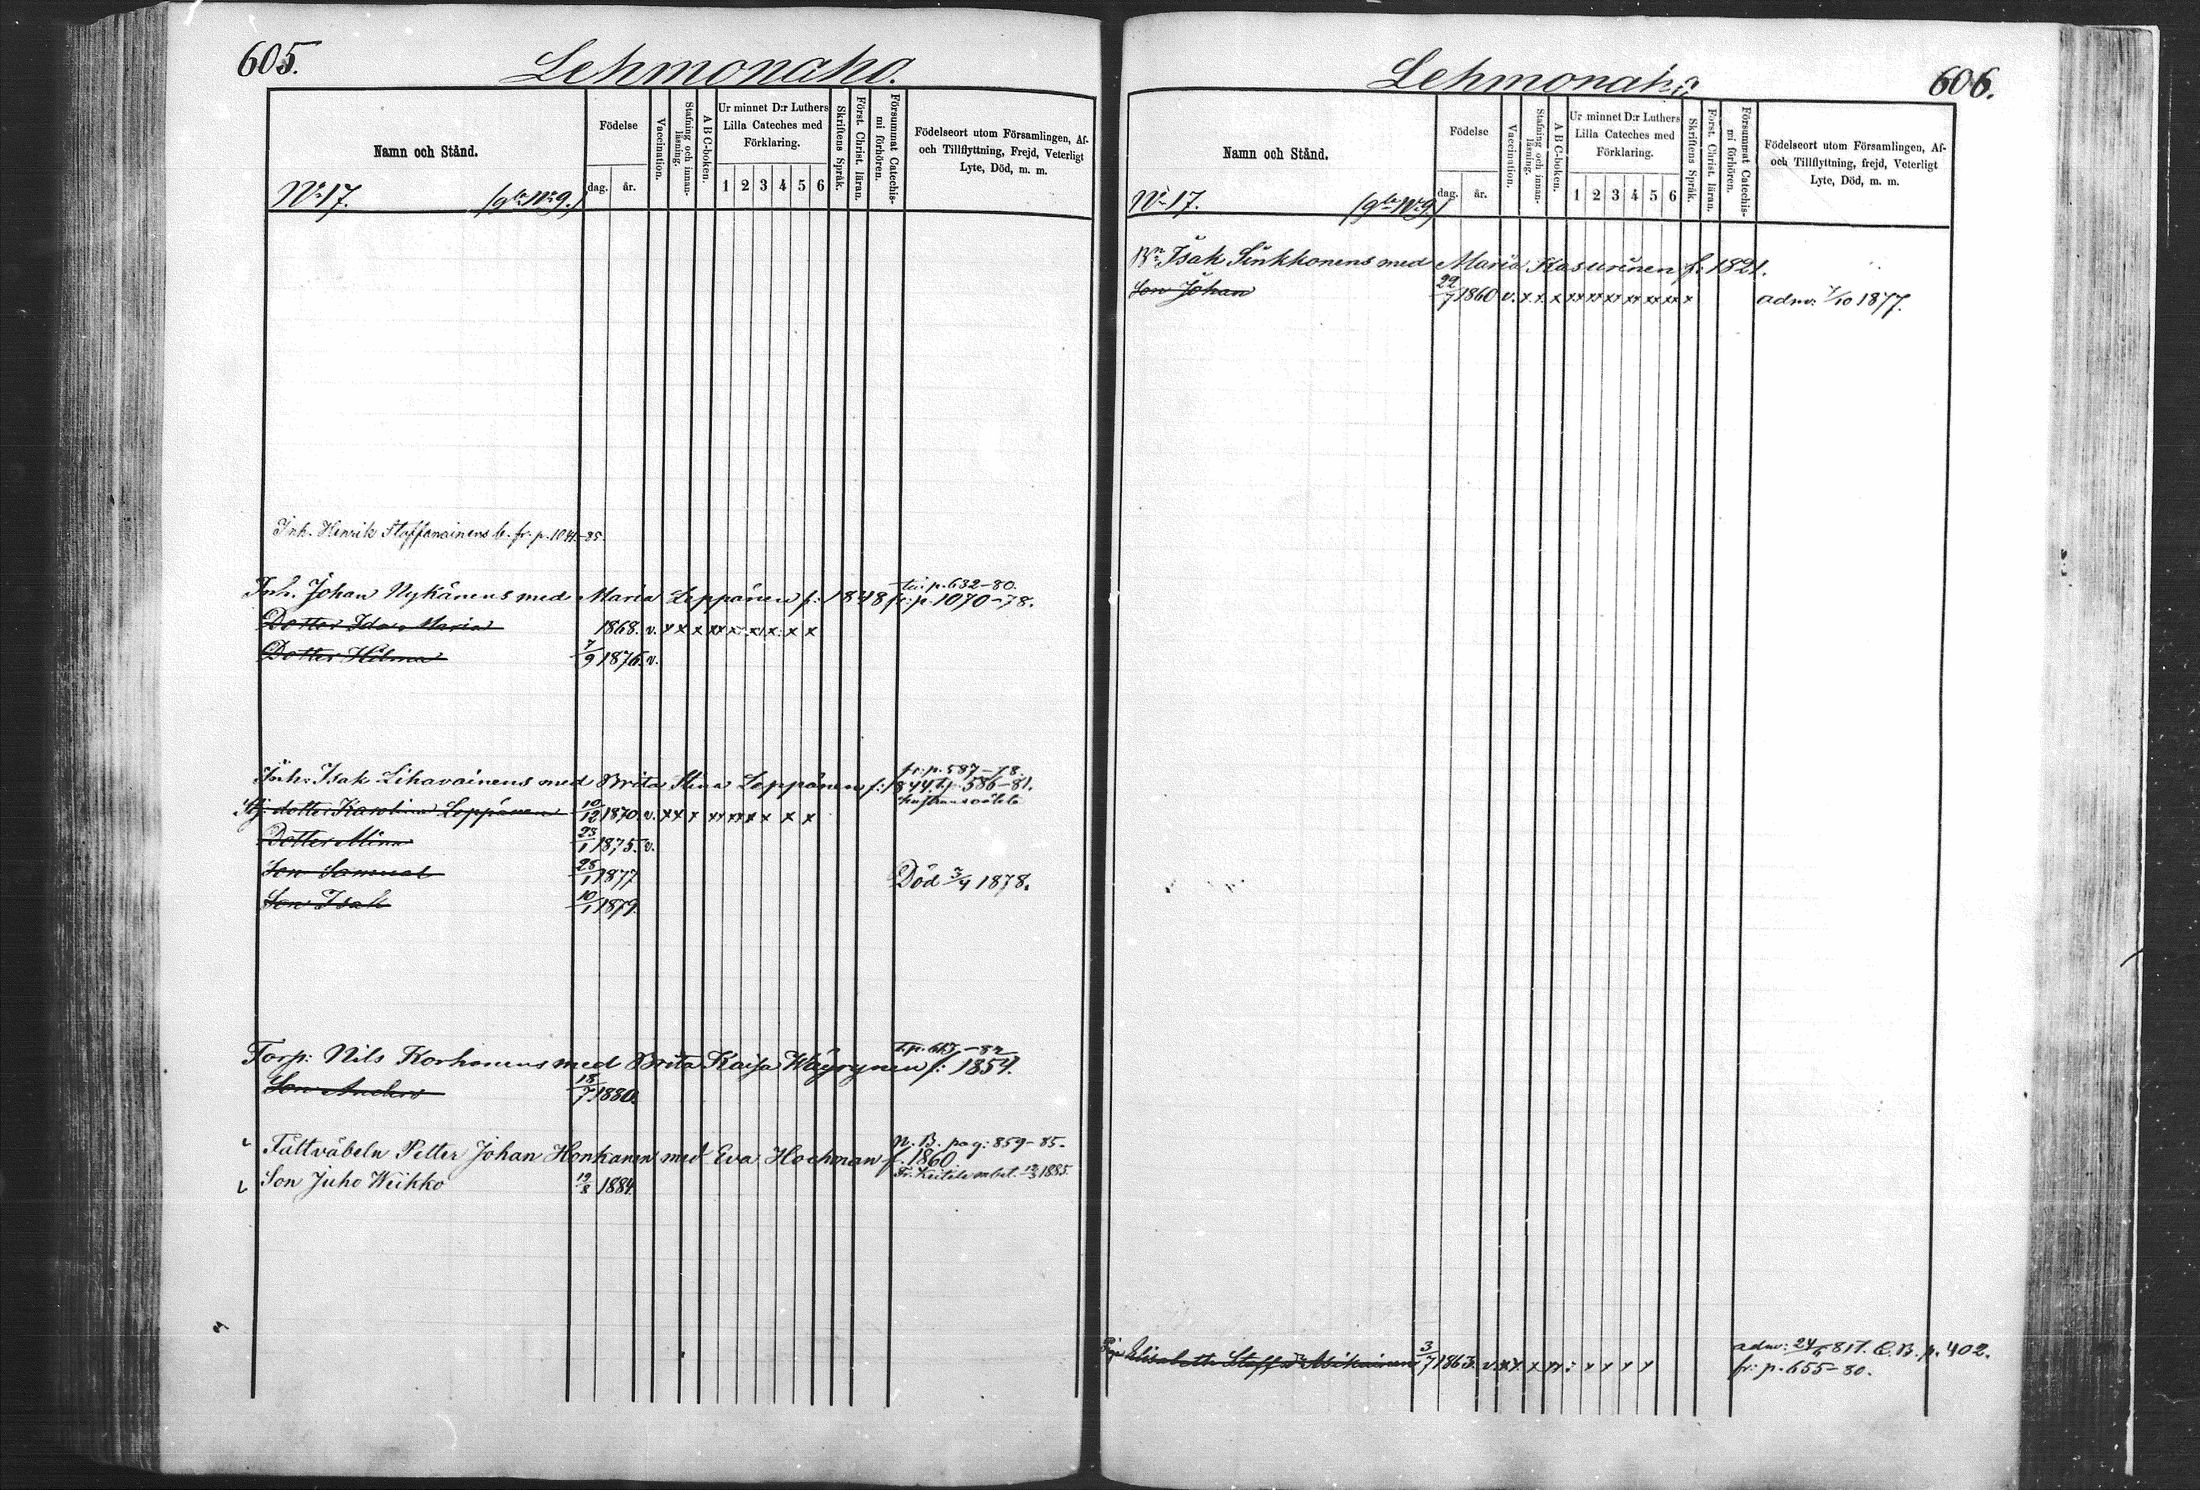 605.
Lehmonaho.
Namn och Stånd.
Födelse
dag. år.
Vaccination.
Stafning och innan-läsning.
A B C-boken.
Ur minnet D:r Luthers
Lilla Cateches med
Förklaring.
1 2 3 4 5 6
Skriftens Språk.
Först. Christ. läran.
Försummat Catechis-
mi förhören.
Födelseort utom Församlingen, Af-
och Tillflyttning, Frejd, Veterligt
Lyte, Död, m. m.
No 17. (gla No 9.)
Inh. Henrik Staffanainens b. fr. p. 1041-85.
t. p. 632-80.
Inh. Johan Nykänens med Maria Leppänen f: 1848 fr: p. 1070-78.
Dotter Ida Maria 1868. v. x x x xx x x x x x
Dotter Hilma 7/9 1876. v.
fr: p. 587-78.
Inh: Isak Lihavainens med Brita Stina Leppänen f: 1844 t. p. 586-81.
dotter Karolina Leppänen 10/12 1870. v. xx x xx xx x x x x
Dotter Mina 23/1 1875. v.
Son Samuel 28/1 1877 Död 3/4 1878.
Son Isak 10/1 1879.
T. p. 667-82
Torp: Nils Korhonens med Brita Kaisa Wäyrynen f: 1854.
Son Anders 18/7 1880.
N. B. pag: 859-85.
Fältväbeln Petter Johan Honkanen med Eva Hochman f. 1860
Fr. Keitele anbet. 1885.
Son Juho Wiikko 19/8 1884.
Lehmonaho
606.
Namn och Stånd.
Födelse
dag. år.
Vaccination.
Stafning och innan-läsning.
A B C-boken.
Ur minnet D:r Luthers
Lilla Cateches med
Förklaring.
1 2 3 4 5 6
Skriftens Språk.
Först. Christ. läran.
Försummat Catechis-
mi förhören.
Födelseort utom Församlingen, Af-
och Tillflyttning, frejd, Veterligt
Lyte, Död, m. m.
No 17. (gla No 9)
Bn Isak Sinkkonens med Maria Kasurinen f: 1821.
Son Johan 22/7 1860 v. x x x xx xx xx xx xx xx x adm: 7/10 1877.
Elisabeth Staff. dr Asikainen 3/7 1863. v. xx x x xx : x x x x adm: 24/6 817. C. B. p. 402.
fr: p. 655-80.